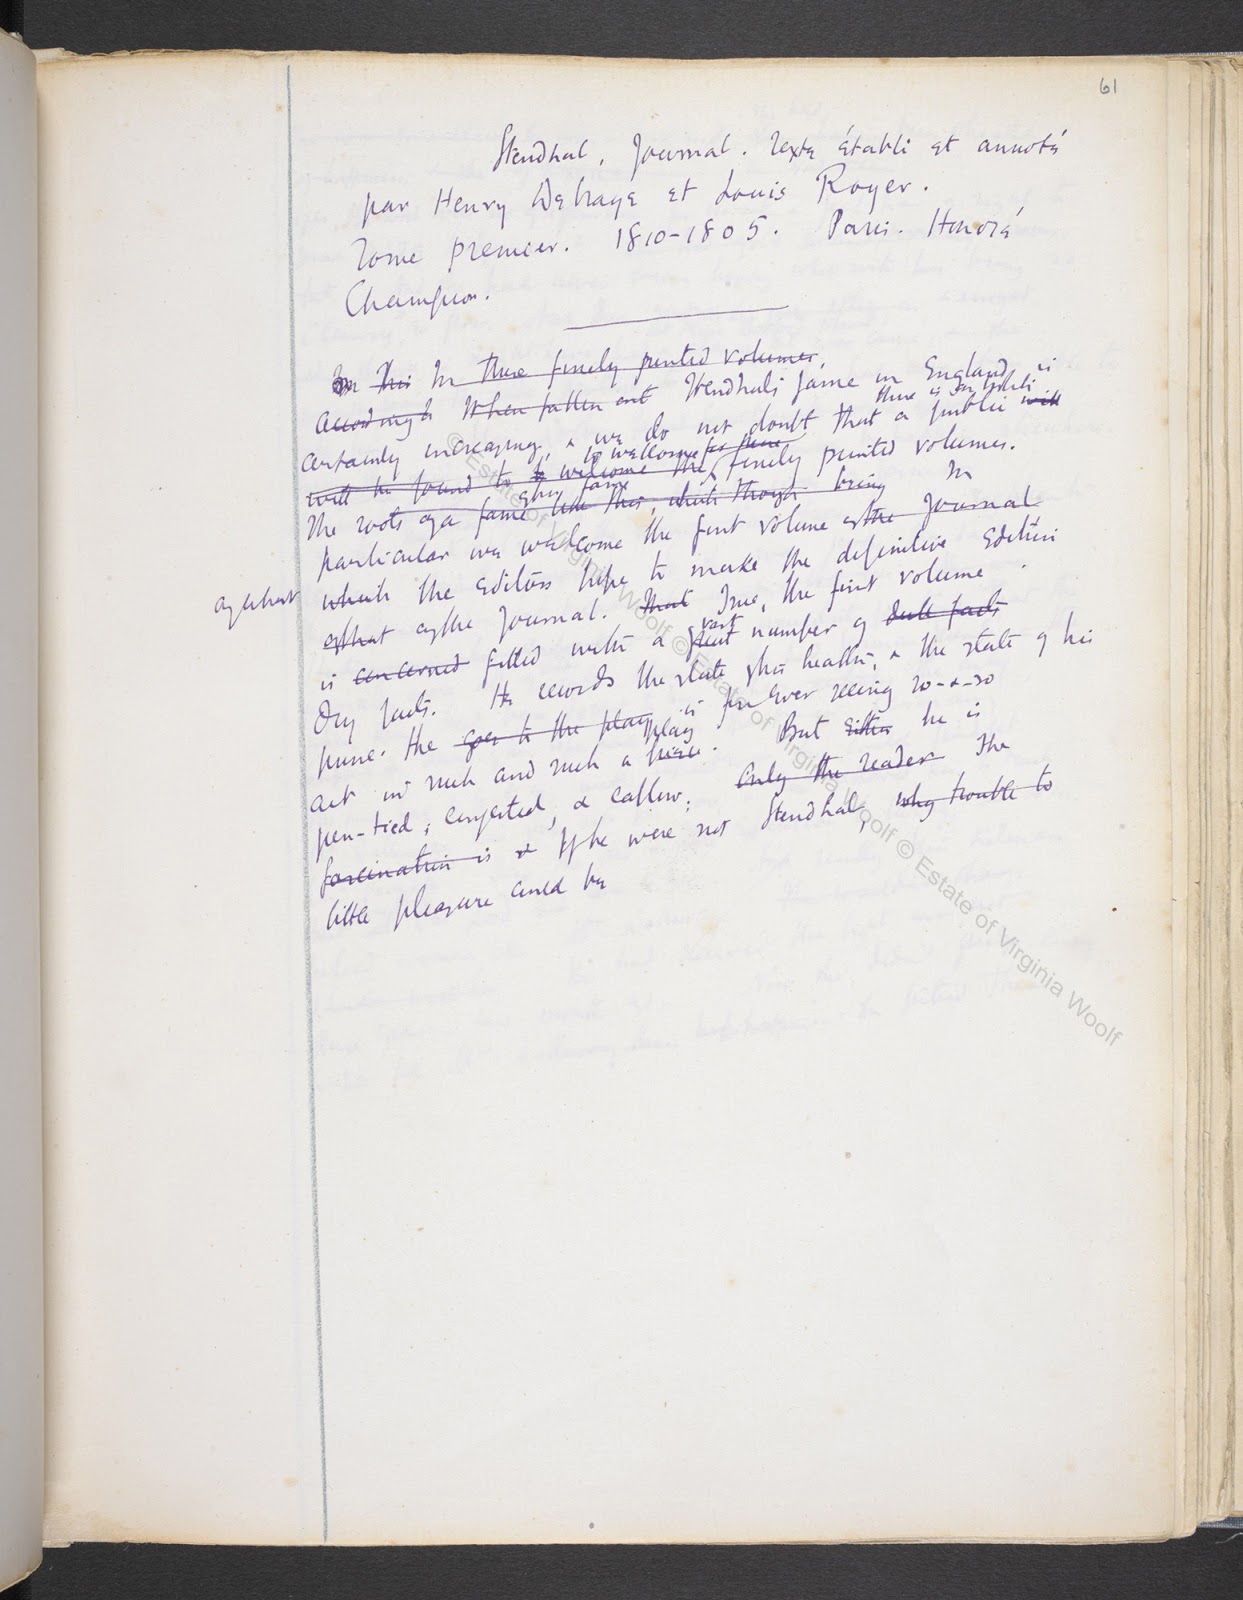 61
Stendhal, Journal. Texte établi et annoté
par Henry Debraye et Louis Royer.
Tome premier. 1810-1805. Paris. Honoré
Champion.
In This In three finely printed volumes,
According to When fallen out Stendhal's fame in England is
certainly increasing, & we do not doubt that a public will
there is a public
will be found to welcome the finely printed volumes.
to welcome
The roots of a fame like this, which though being In
particular we welcome the first volume of the Journal
which the editors hope to make the definitive Edition
of what of the Journal. That True, the first volume
is concerned filled with a great number of dull facts
vast
Dry facts. He records the state of his health, & the state of his
purse. He goes to the play is for ever seeing so-&-so
act in such and such a piece. But either he is
play
pen-tied, congested, & callow; Only the reader The
fascination is & If he were not Stendhal, why trouble to
little pleasure could be
© Estate of Virginia Woolf © Estate of Virginia Woolf © Estate of Virginia Woolf